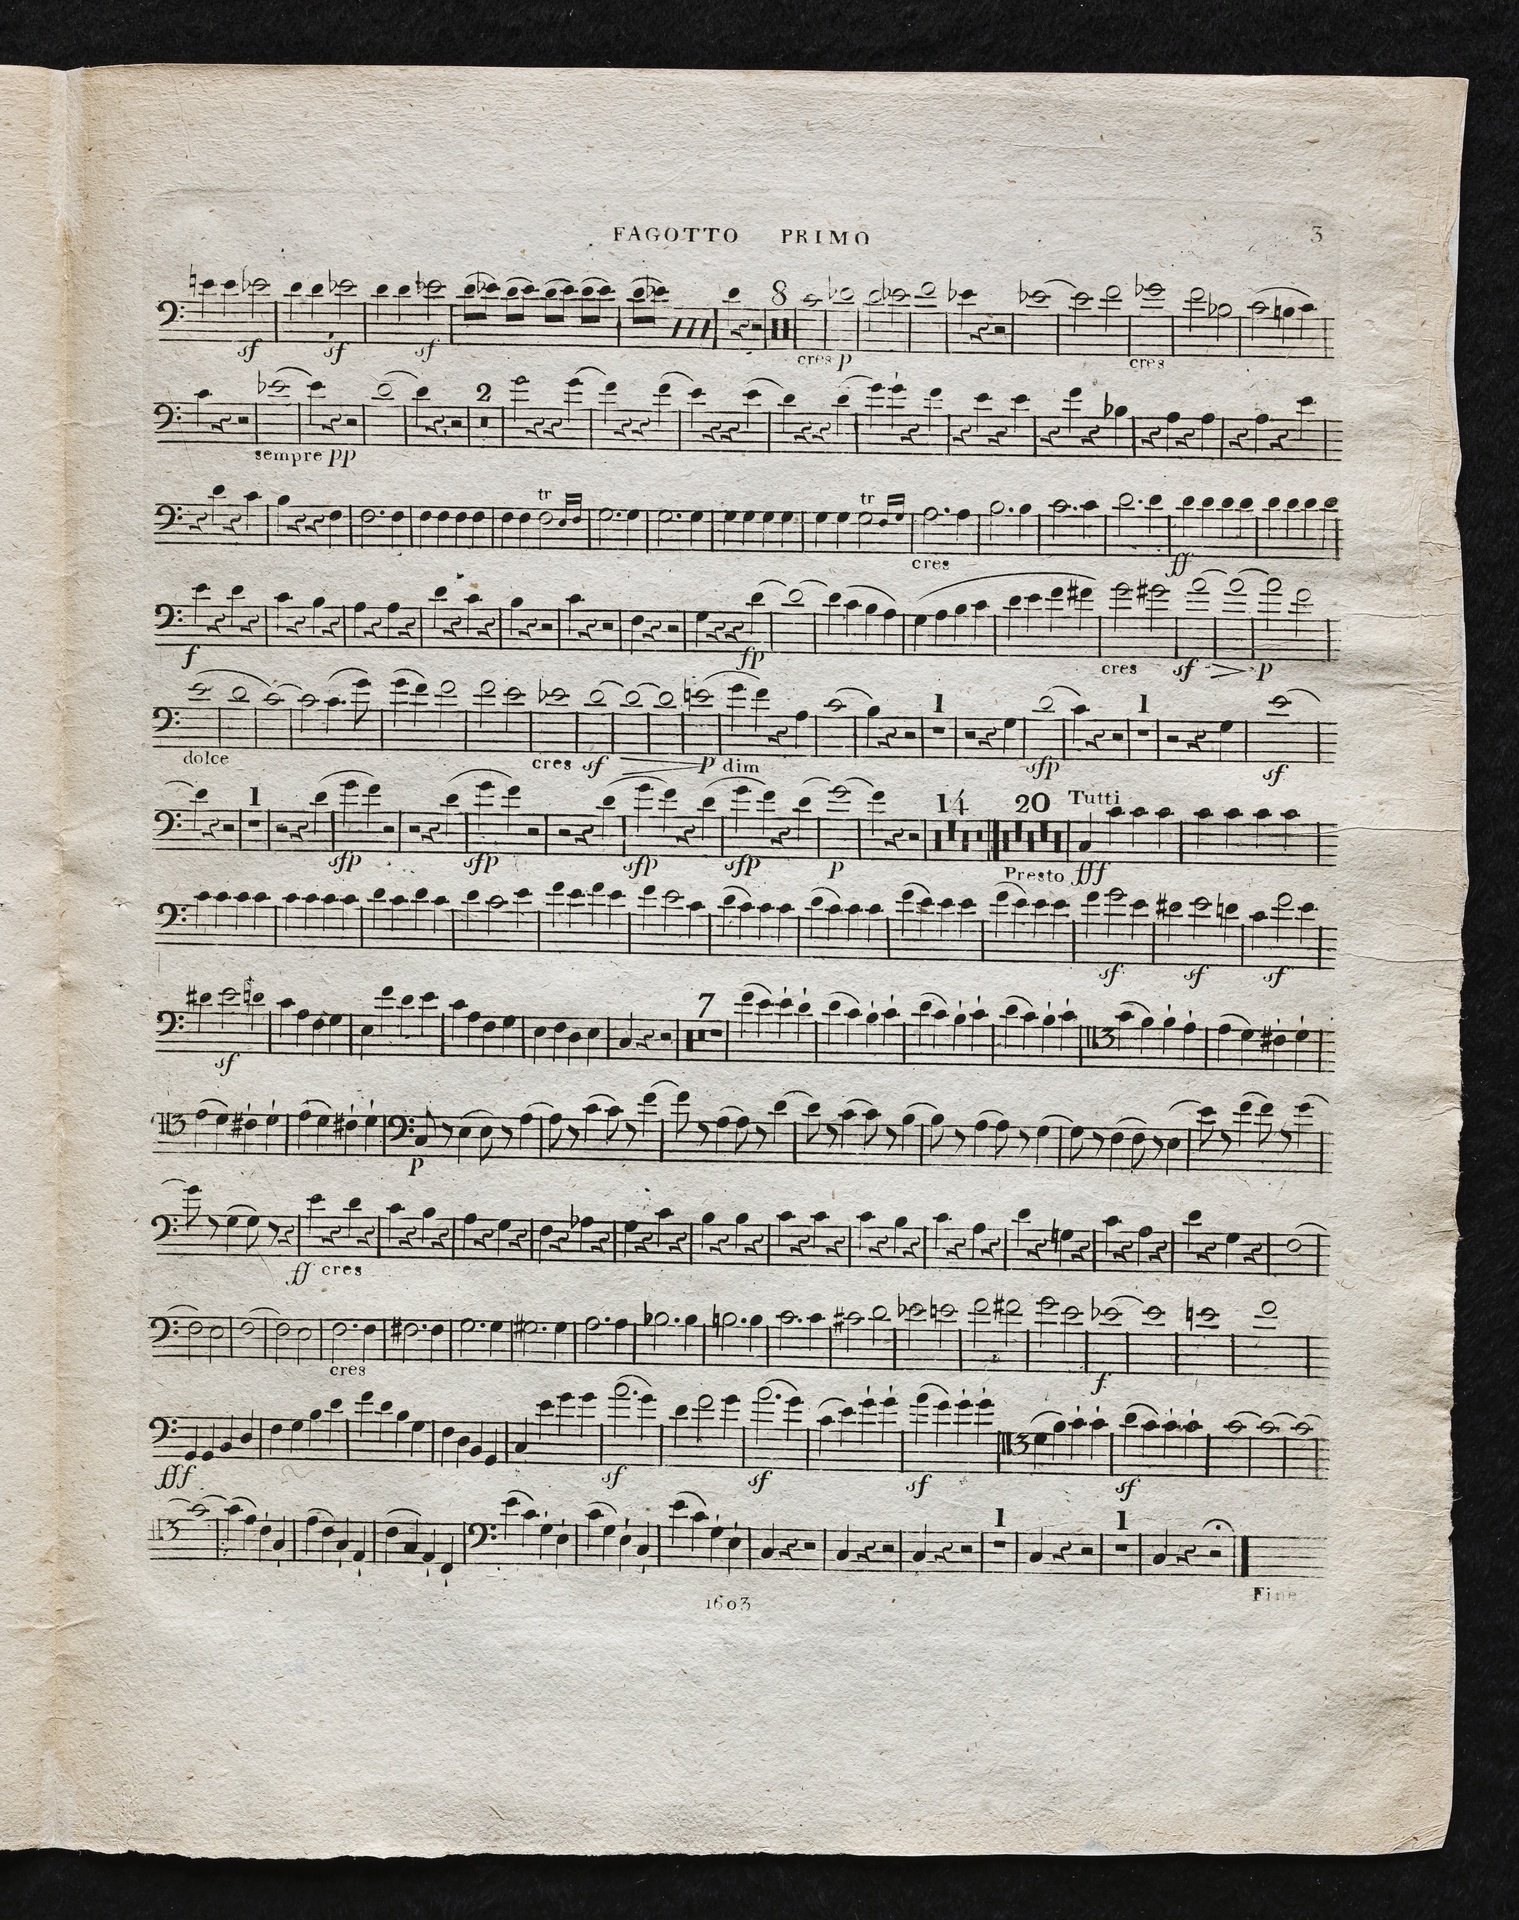 FAGOTTO PRIMO 3
8
sf sf sf cres p cres
2
sempre pp
tr tr
cres ff
f fp cres sf p
1 1
dolce cres sf p dim sfp sf
1 14 20 Tutti
sfp sfp sfp sfp p Presto fff
sf sf sf
7
sf
p
ff cres
cres f
fff sf sf sf sf
1 1
Fine
1603